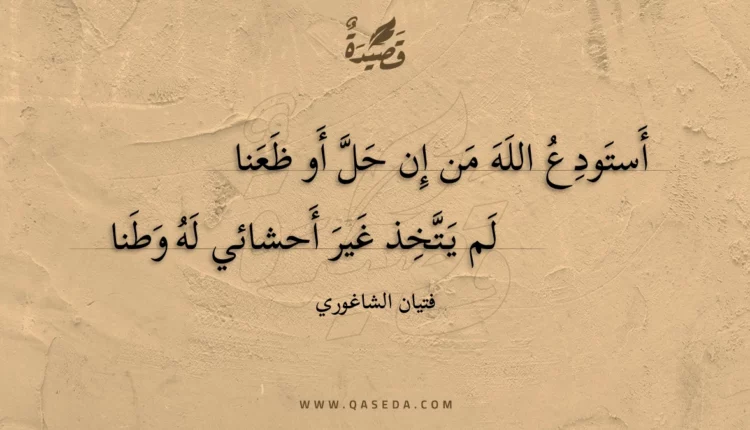 قَصِيْدَةٌ
أَستَودِعُ اللَهَ مَن إِن حَلَّ أَو ظَعَنا
لَم يَتَّخِذ غَيرَ أَحشائي لَهُ وَطَنا
فتيان الشاغوري
WWW.QASEDA.COM